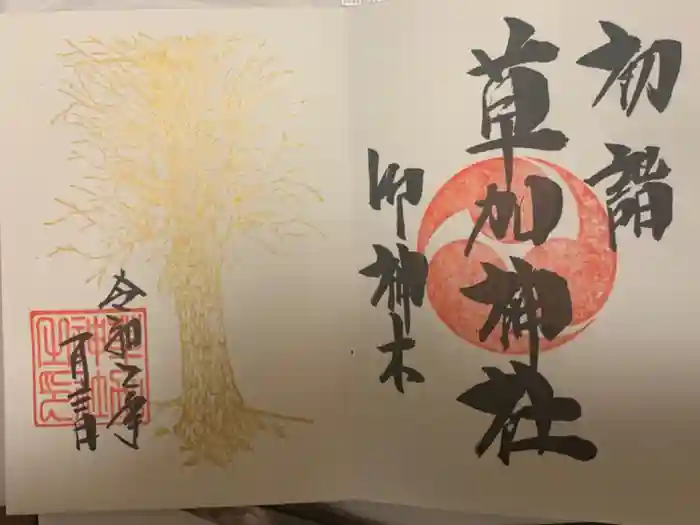 初詣
草加神社
御神木
令和二年
一月三日